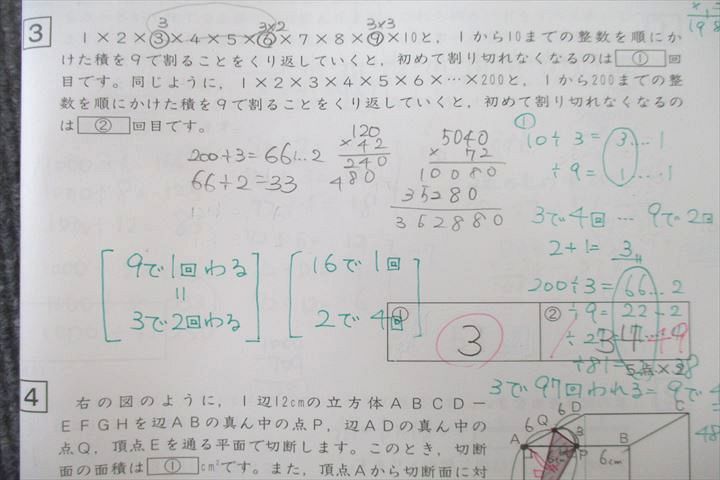 3 3×2 3×3
3 1×2×③×4×5×⑥×7×8×⑨×10と，1から10までの整数を順にか
けた積を9で割ることをくり返していくと，初めて割り切れなくなるのは ① 回
目です。同じように，1×2×3×4×5×6×…×200と，1から200までの整
数を順にかけた積を9で割ることをくり返していくと，初めて割り切れなくなるの
は ② 回目です。
200÷3=66…2
66÷2=33
120
×42
240
480
5040
×72
10080
35280
362880
①
10÷3=3…1
÷9=1…1
3で4回…9で2回
2+1=3
200÷3=66…2
÷9=22…2
÷81=
3で97回われる=9で
48
9で1回わる
=
3で2回わる
16で1回
2で4回
① 3
② 34 49
5点×2
4 右の図のように，1辺12cmの立方体ABCD－
EFGHを辺ABの真ん中の点P，辺ADの真ん中の
点Q，頂点Eを通る平面で切断します。このとき，切断
面の面積は ① cm²です。また，頂点Aから切断面に対
6 D C
Q 6
A 3 P B
6cm